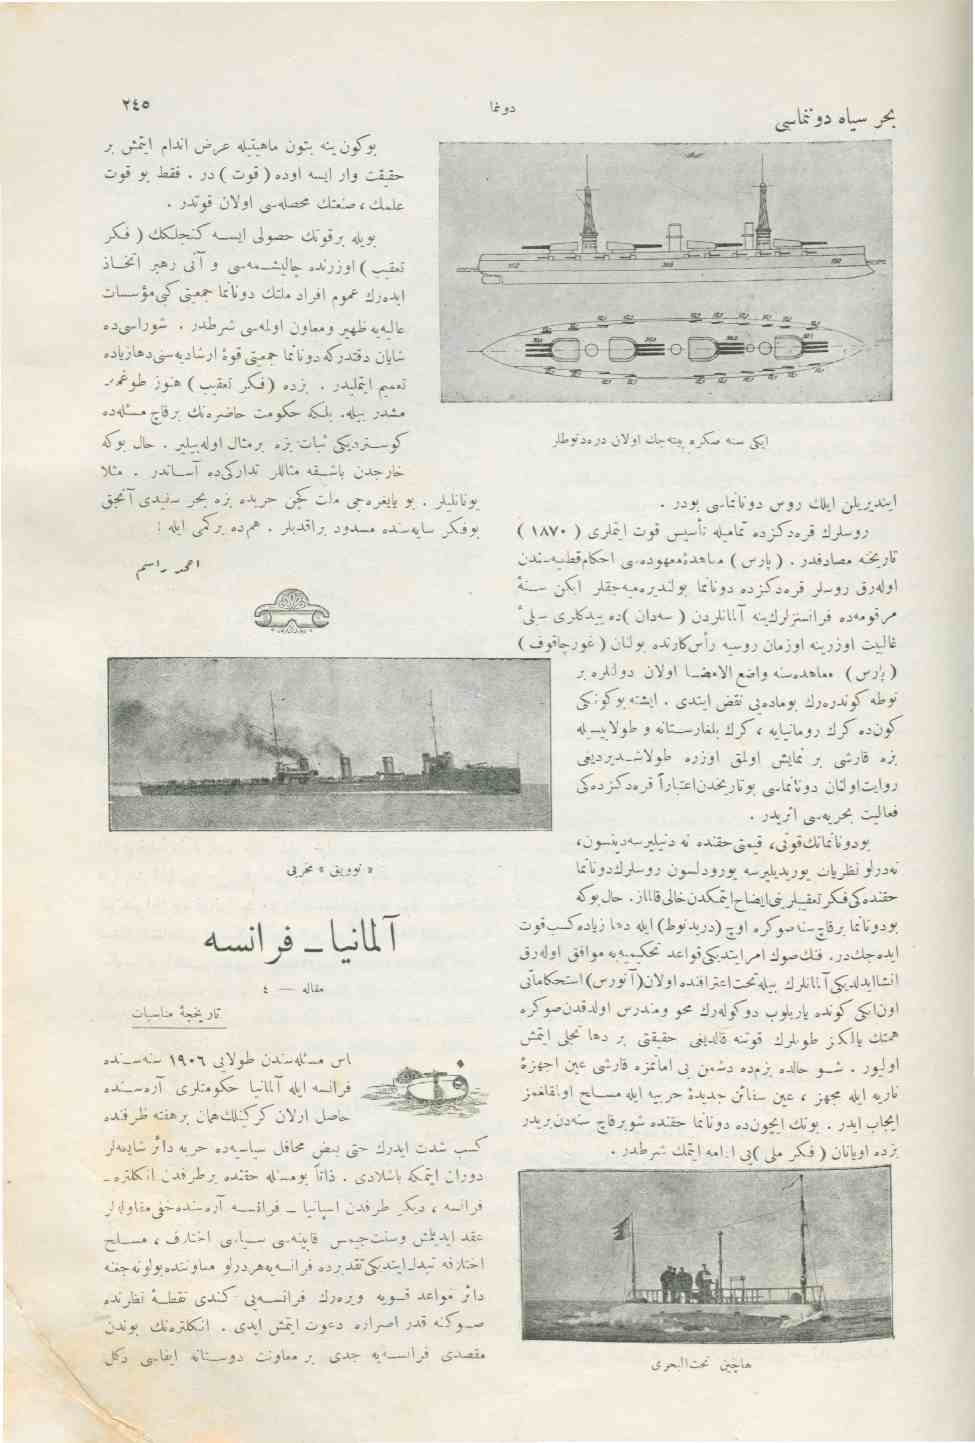 دوننما
٢٤٥
بحر سیاه دوننماسی
ایکی سنه صکره بیته‌جك اولان دره‌دنوطلر
ایندیریلن ایلك روس دوناننماسی بودر .
روسلرك قره‌دکزده تمامیله تأسیس قوت ایتملری ( ١٨٧٠ )
تاریخنه مصادفدر . ( پارس ) معاهدهٔ معهوده‌سی احکام قطعیه‌سندن
اوله‌رق روسلر قره‌دکزده دوناننما بولندیره‌میه‌جقلر ایکن سنهٔ
مرقومه‌ده فرانسزلرك ینه آلمانلردن ( سه‌دان ) ده ییدکلری سیلئ
غالبیت اوزرینه اوزمان روسیه رأس کارنده بولنان ( غورچاقوف )
( پارس ) معاهده‌سنه واضع الامضا اولان دولتلره بر
نوطه کوندره‌رك بوماده‌یی نقض ایتدی . ایشته بوکونکی
کون‌ده کرك رومانیایه ، کرك بلغارستانه و طولاییسیله
بزه قارشی بر نمایش اولمق اوزره طولاشدیردیغی
روایت اولنان دوناننماسی بوتاریخدن اعتباراً قره‌دکزده‌کی
فعالیت بحریه‌سی اثریدر .
بودوناننمانك قوتی، قیمتی حقنده نه دنیلیرسه‌دینسون،
نه‌درلو نظریات یوریدیلیرسه یورودلسون روسلرك دوناننما
حقنده‌کی فکر تعقیبلرینی ایضاح ایتمکدن خالی قالماز. حال بوکه
بودوناننما برقاچ سنه صوکره اوچ (دریدنوط) ایله دها زیاده کسب قوت
ایده‌جکدر. فنك صوك امر ایتدیکی قواعد تحکیمیه‌یه موافق اوله‌رق
انشا ایدلدیکی آلمانلرك بیله تحت اعترافنده اولان (آنورس) استحکاماتی
اون ایکی کونده یاریلوب دوکوله‌رك محو ومندرس اولدقدن صوکره
همتك یالکز طوپلرك قوتنه قالدیغی حقیقتی بر دها تجلی ایتمش
اولیور . شو حالده بزم‌ده دشمن بی امانمزه قارشی عین اجهزهٔ
ناریه ایله مجهز ، عین سفائن جدیدهٔ حربیه ایله مسلح اولمقلغمز
ایجاب ایدر . بونك ایچون‌ده دوناننما حقنده شوبرقاچ سنه‌دن بریدر
بزده اویانان ( فکر ملی ) یی ادامه ایتمك شرطدر .
هاچین تحت‌البحری
بوکون ینه بتون ماهیتیله عرض اندام ایتمش بر
حقیقت وار ایسه اوده ( قوت ) در . فقط بو قوت
علمك ، صنعتك محصله‌سی اولان قوتدر .
بویله برقوتك حصولی ایسه کنجلکك ( فکر
تعقیب ) اوزرنده چالیشمه‌سی و آنی رهبر اتخاذ
ایده‌رك عموم افراد ملتك دوناننما جمعیتی کبی مؤسسات
عالیه‌یه ظهیر ومعاون اولمه‌سی شرطدر . شوراسی‌ده
شایان دقتدرکه دوناننما جمعیتی قوهٔ ارشادیه‌سنی دهازیاده
تعمیم ایتملیدر . بزده (فکر تعقیب ) هنوز طوغمه‌مش
مشدر بیله. بلکه حکومت حاضره‌نك برقاچ مسئله‌ده
کوستردیکی ثبات بزه برمثال اوله‌بیلیر . حال بوکه
خارجدن باشقه مثاللر تدارکی‌ده آساندر . مثلا
یونانلیلر . بو یایغره‌جی ملت کچن حربده بزه بحر سفیدی آنجق
بوفکر سایه‌سنده مسدود براقدیلر . هم‌ده برکمی ایله !
احمد راسم
« نوویق » مخربی
آلمانیا ــ فرانسه
مقاله — ٤
تاریخچهٔ مناسبات
فاس مسئله‌سندن طولایی ١٩٠٦ سنه‌سنده
فرانسه ایله آلمانیا حکومتلری آره‌سنده
حاصل اولان کرکینلك همان برهفته ظرفنده
کسب شدت ایدرك حتی بعض محافل سیاسیه‌ده حربه دائر شایعه‌لر
دوران ایتمکه باشلادی . ذاتاً بومسئله حقنده برطرفدن انکلتره ــ
فرانسه ، دیکر طرفدن اسپانیا ــ فرانسه آره‌سنده خفی مقاوله‌لر
عقد ایدیلمش وسنت‌جیمس قابینه‌سی سیاسی اختلاف ، مسلح
اختلافه تبدل ایتدیکی تقدیرده فرانسه‌یه هردرلو معاونتده بولونه‌جغنه
دائر مواعد قویه ویره‌رك فرانسه‌یی کندی نقطهٔ نظرنده
صوکنه قدر اصراره دعوت ایتمش ایدی . انکلتره‌نك بوندن
مقصدی فرانسه‌یه جدی بر معاونت دوستانه ایفاسی دکل